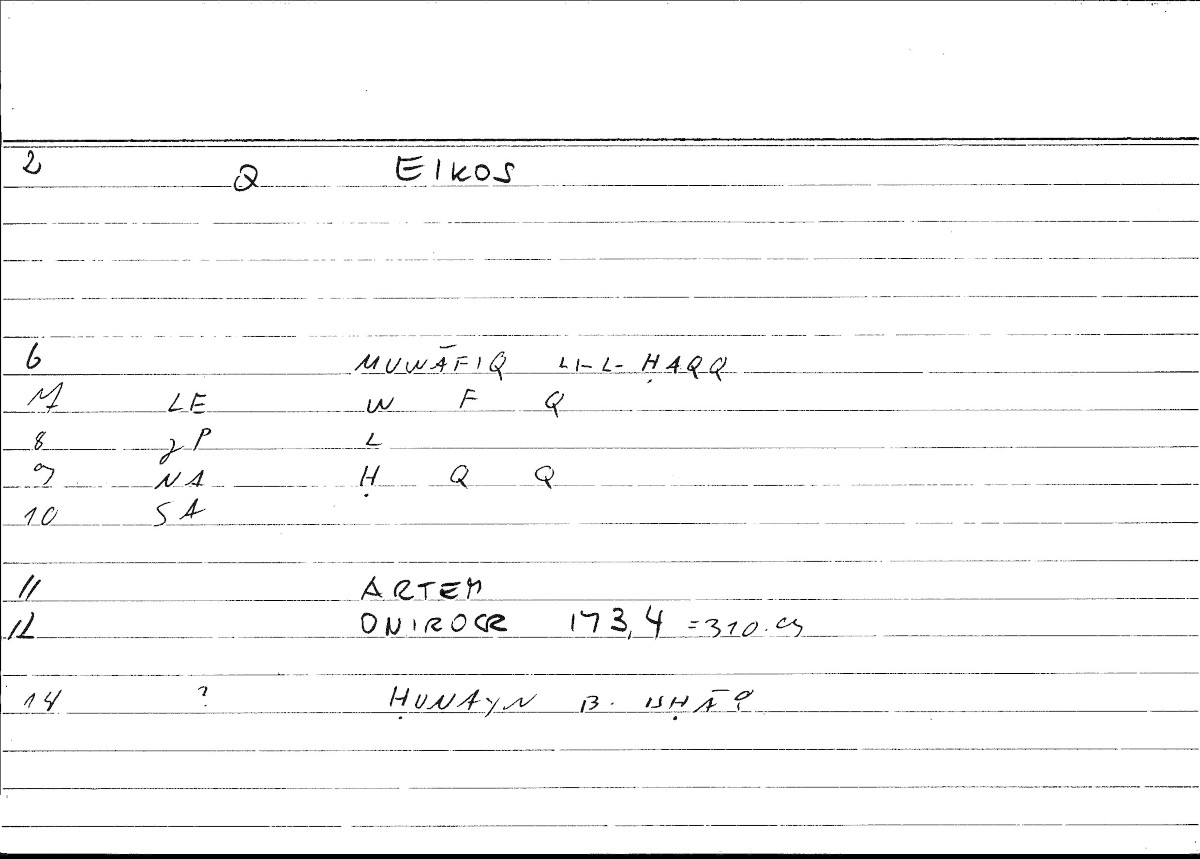 2 Q EIKOS
6 MUWĀFIQ LI-L-ḤAQQ
M LE W F Q
8 gP L
9 NA Ḥ Q Q
10 SA
11 ARTEM
12 ONIROCR 173,4 =310.9
14 ? ḤUNAYN B. ISḤĀQ